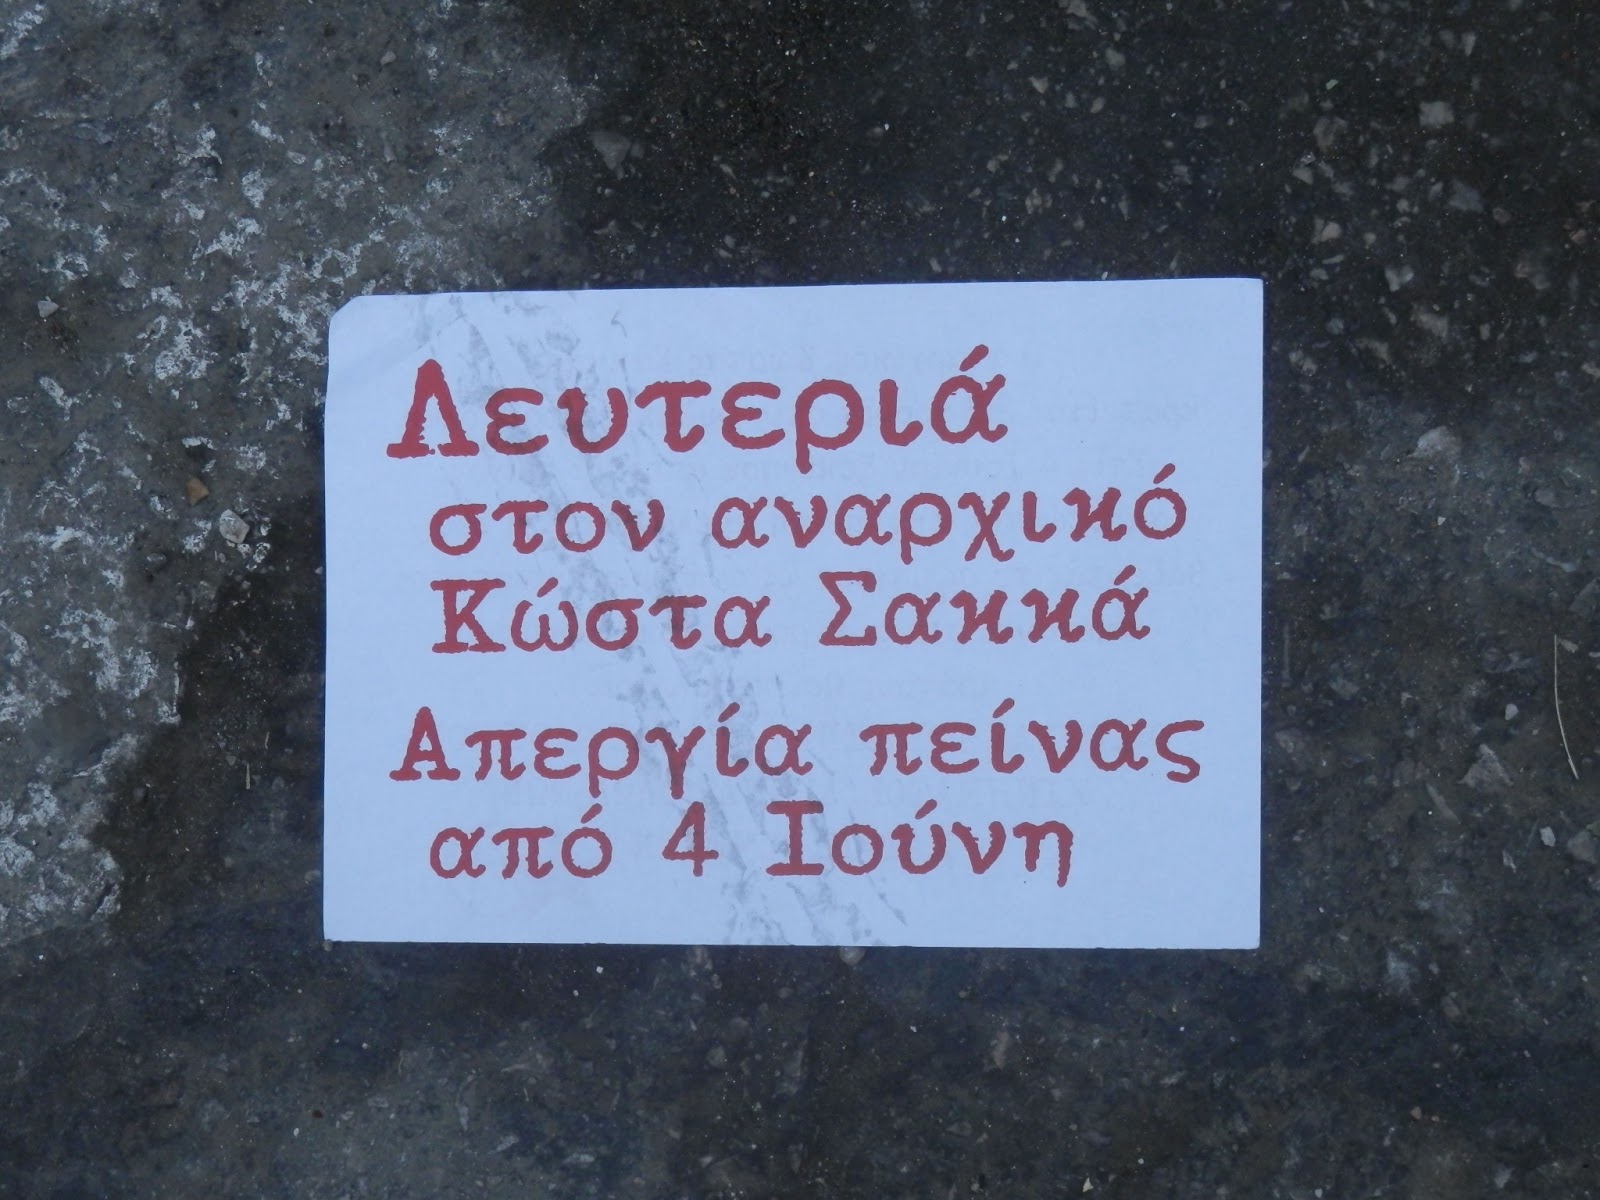 Λευτεριά
στον αναρχικό
Κώστα Σακκά
Απεργία πείνας
από 4 Ιούνη